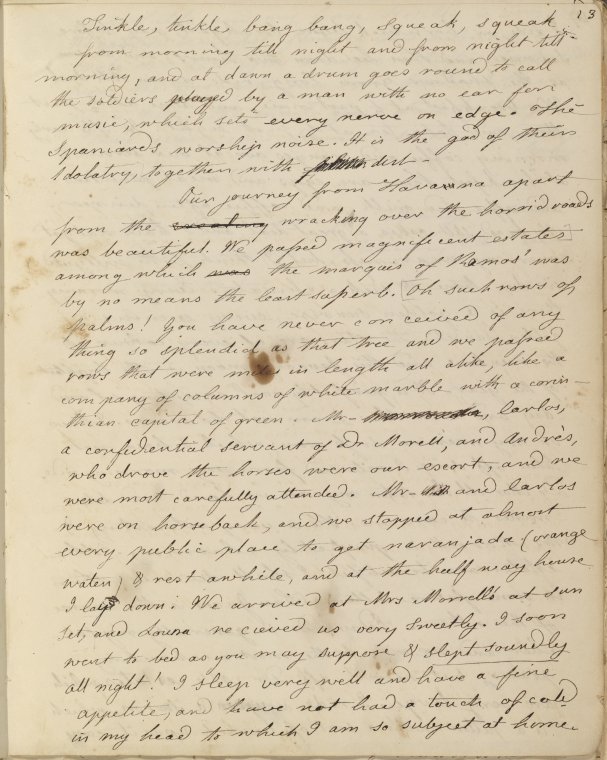 13
Tinkle, tinkle, bang bang, squeak, squeak
from morning till night and from night till
morning, and at dawn a drum goes round to call
the soldiers played by a man with no ear for
music, which sets every nerve on edge. The
Spaniards worship noise. It is the god of their
Idolatry, together with dirt—
Our journey from Havanna apart
from the wracking over the horrid roads
was beautiful. We passed magnificent estates
among which was the marquis of Ramos' was
by no means the least superb. [Oh such rows of
palms! You have never conceived of any
thing so splendid as that tree and we passed
rows that were miles in length all alike, like a
company of columns of white marble with a corin-
thian capital of green. Mr— Carlos,
a confidential servant of Dr Morell, and Andrès,
who drove the horses were our escort, and we
were most carefully attended. Mr— and Carlos
were on horseback, and we stopped at almost
every public place to get naranjada (orange
water) & rest awhile, and at the half way house
I lay down. We arrived at Mrs Morrell's at sun
set, and Louisa recieved us very sweetly. I soon
went to bed as you may suppose & slept soundly
all night! I sleep very well and have a fine
appetite, and have not had a touch of cold
in my head to which I am so subject at home.